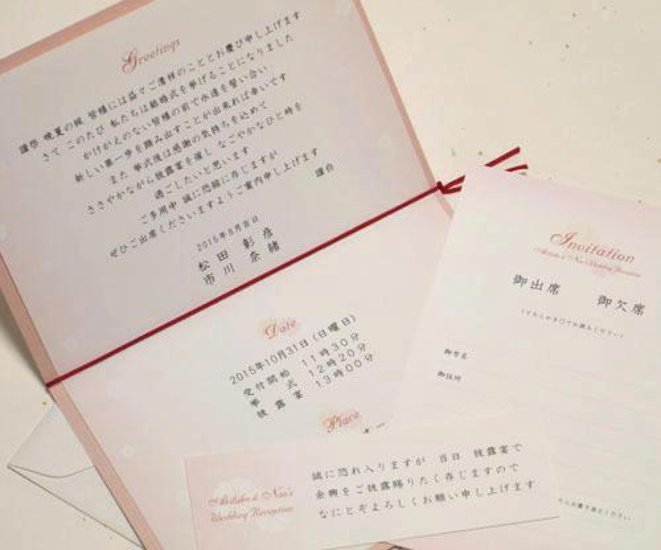 Greetings
謹啓 晩夏の候 皆様には益々ご清祥のこととお慶び申し上げます
さて このたび 私たちは結婚式を挙げることになりました
かけがえのない皆様の前で永遠を誓い合い
新しい第一歩を踏み出すことが出来れば幸いです
また 挙式後は感謝の気持ちを込めて
ささやかながら披露宴を催し なごやかなひと時を
過ごしたいと思います
ご多用中 誠に恐縮に存じますが
ぜひご出席くださいますようご案内申し上げます
謹白
2015年8月吉日
松田 彰彦
市川 奈緒
Date
2015年10月31日(日曜日)
受付開始 11時30分
挙 式 12時20分
披露宴 13時00分
Place
Akihiko & Nao's
Wedding Reception
誠に恐れ入りますが 当日 披露宴で
余興をご披露賜りたく存じますので
なにとぞよろしくお願い申し上げます
Invitation
Akihiko & Nao's Wedding Reception
御出席 御欠席
(どちらかを○でお囲みください)
御芳名
御住所